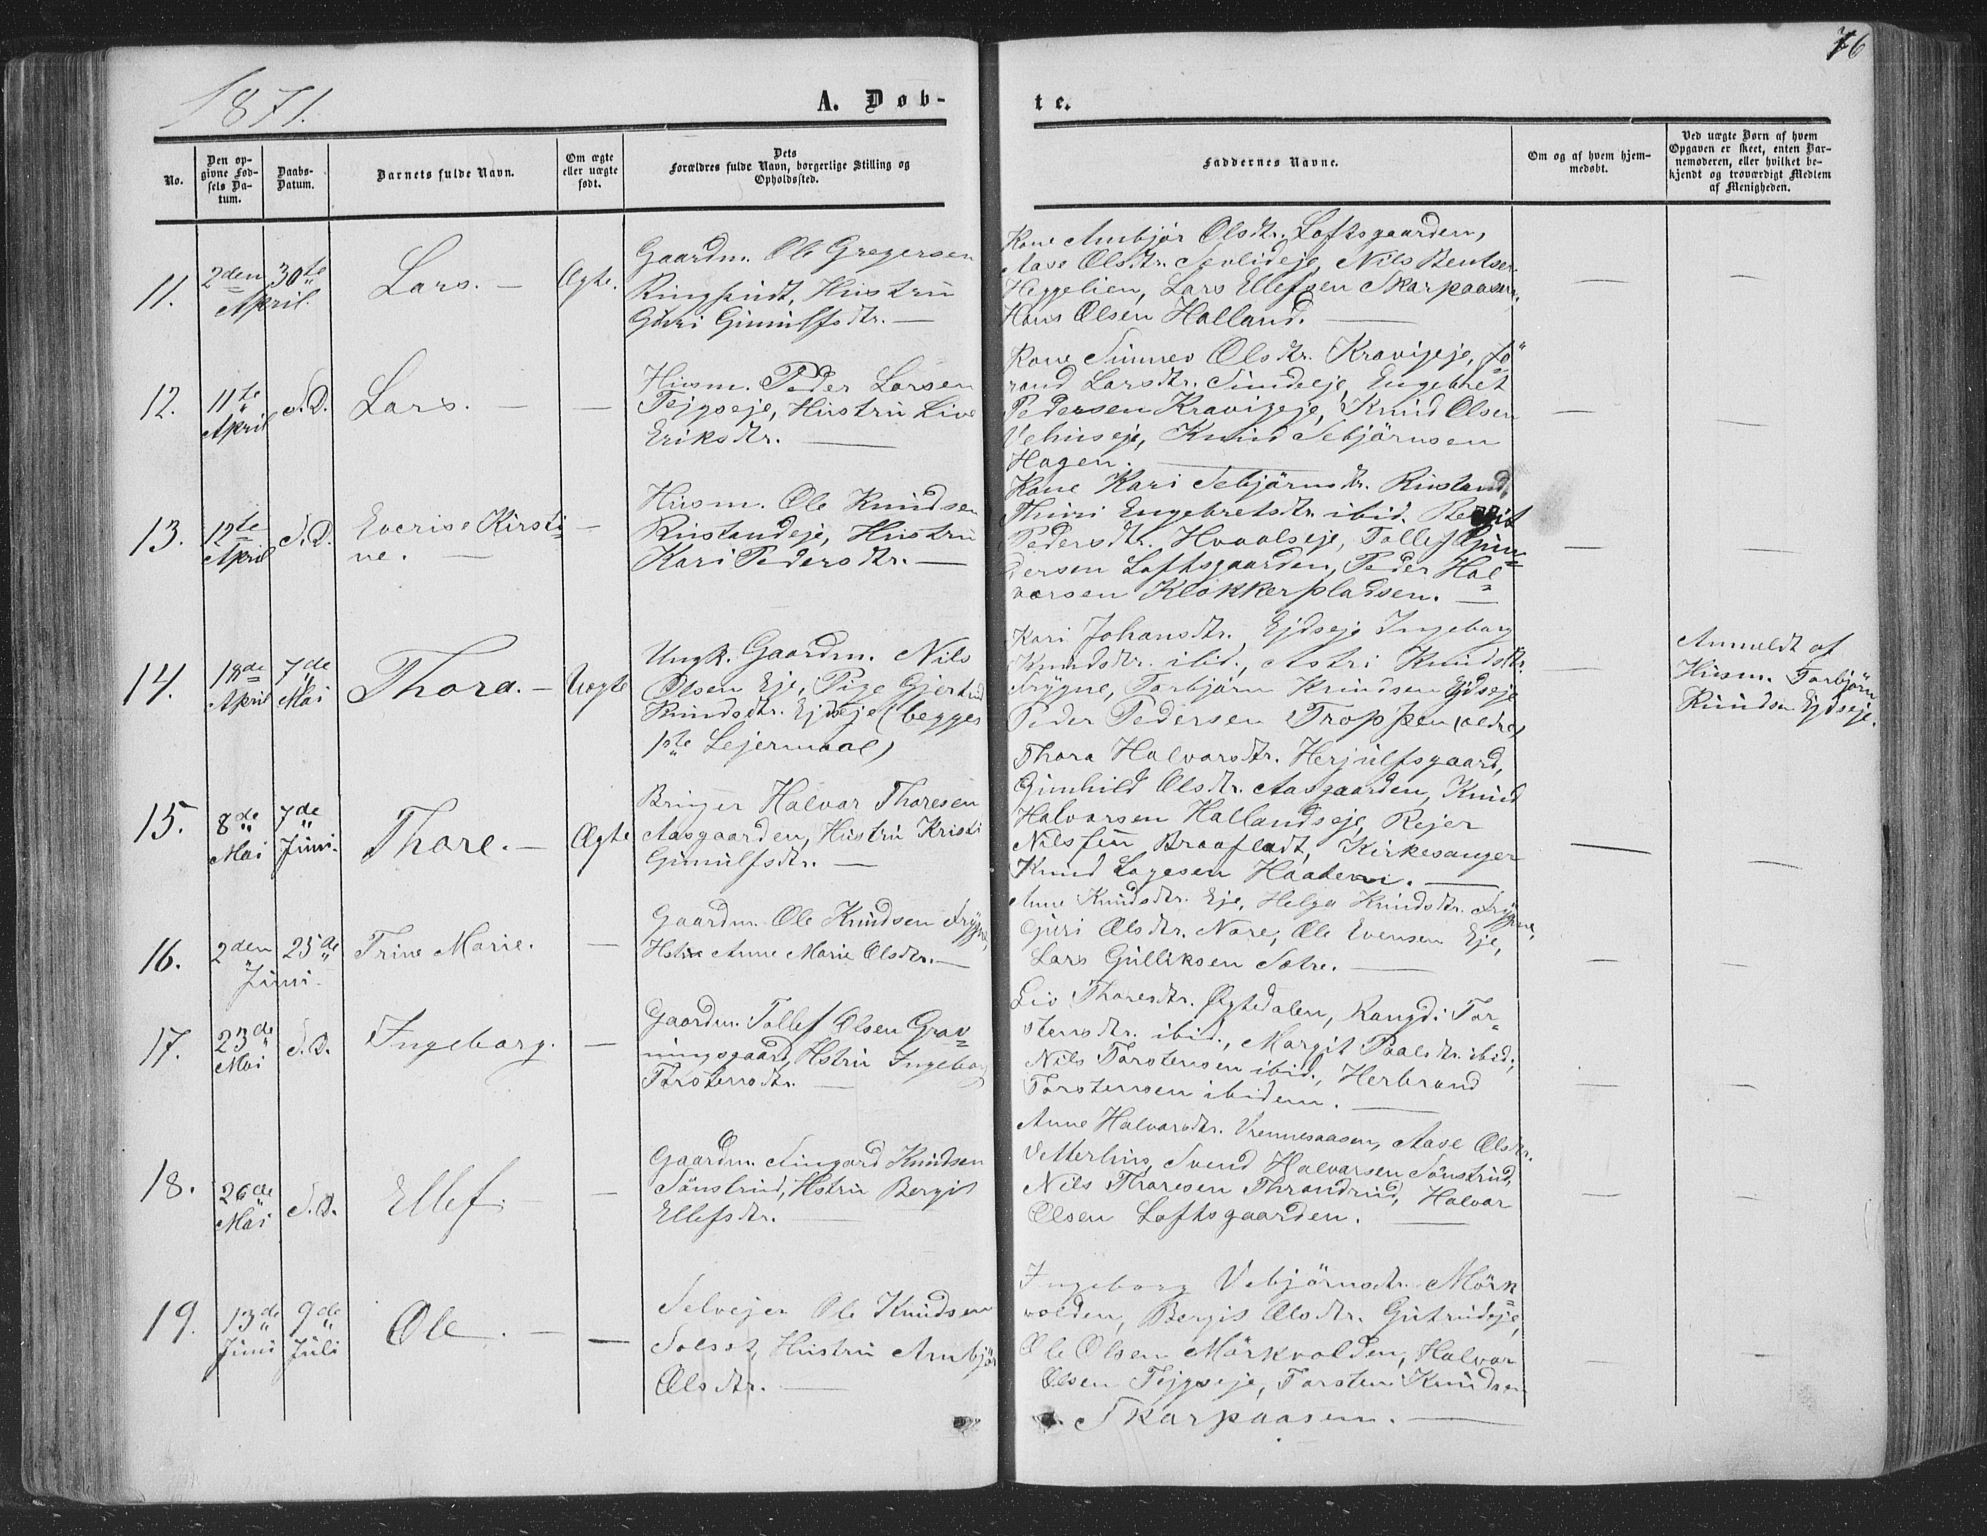 1871.
A. Døb-
te.
76
No.
Den op-
givne Fød-
sels Da-
tum.
Daabs-
Datum.
Barnets fulde Navn.
Om ægte
eller uægte
født.
Dets
Forældres fulde Navn, borgerlige Stilling og
Opholdssted.
Faddernes Navne.
Om og af hvem hjem-
medøbt.
Ved uægte Børn af hvem
Opgaven er skeet, enten Bar-
nemoderen, eller hvilket be-
kjendt og troværdigt Medlem
af Menigheden.
11.
2den
April
30te
Lars. —
Ægte.
Gaardm. Ole Gregersen
Ringhindt, Hustru
Guri Gunulfsdtr. —
Kone Anbjør Olsdtr. Loftsgaarden,
Aase Olsdtr. Nils Bentsen
Heggelien, Lars Ellefsen Skarpaasen,
Hans Olsen Halland. —
12.
11te
April
S.D.
Lars. —
—
Husm. Peder Larsen
Tejgseje, Hustru Live
Eriksdtr. —
Kone Sünnev Olsdtr. Kravigeje, Jo"
rand Larsdtr. Sundeeje, Engebret
Pedersen Kravigeje, Knud Olsen
Knud Sebjörnsen
Hagen. —
13.
12te
April
S.D.
Everise Kirsti=
ne. —
—
Husm. Ole Knudsen
Rustandeje, Hustru
Kari Pedersdtr. —
Kone Kari Sebjörnsdtr. Rustand,
Thuri Engebretsdtr. ibid. Bergit
Pedersdtr. Hvaalseje, Tollef Gun=
dersen Loftsgaarden, Peder Hal=
varsen Klokkerpladsen. —
14.
18de
April
7de
Mai
Thora. —
Uægte
Ungk. Gaardm. Nils
Olsen Eje, Pige Gjertrud
Knudsdtr. Ejdseje (begges
1ste Lejermaal)
Kari Johansdtr. Ejdseje Ingeborg
Knudsdtr. ibid., Astri Knudsdtr.
Frygne, Torbjørn Knudsen Ejdseje
Peder Pedersen Troppen (ældre)
Anmeldt af
Husm. Torbjörn
Knudsen Ejdseje.
15.
8de
Mai
7de
Juni.
Thore. —
Ægte
Bruger Halvor Thoresen
Aasgaarden, Hustru Kristi
Gunulfsdtr. —
Thora Halvorsdtr. Herjulfsgaard,
Gunhild Olsdtr. Aasgaarden, Knud
Halvorsen Hallandseje, Rejer
Nilsson Braafladt, Kirkesanger
Knud Lagesen Haaten. —
16.
2den
Juni.
25de
Trine Marie.
—
Gaardm. Ole Knudsen Frygne,
Hstru Anne Marie Olsdtr. —
Anne Knudsdtr. Eje, Helga Knudsdtr. Frygne,
Guri Olsdtr. Nore, Ole Evensen Eje,
Lars Gulliksen Sætre. —
17.
23de
Mai
S.D.
Ingeborg.
—
Gaardm. Tollef Olsen Grav=
ningsgaard, Hstru Ingeborg
Torstensdtr. —
Liv Thoresdtr. Øgtedalen, Rangdi Tor-
stensdtr. ibid., Margit Paalsdtr. ibid;
Nils Torstensen ibid., Herbrand
Torstensen ibidem. —
18.
26de
Mai
S.D.
Ellef. —
—
Gaardm. Singard Knudsen
Sönstrud, Hstru Bergit
Ellefsdtr. —
Anne Halvorsdtr. Vrennesaasen, Aase Olsdtr.
Vetterhus, Svend Halvorsen Sönstrud,
Nils Thoresen Thrandrud, Halvor
Olsen Loftsgaarden. —
19.
13de
Juni
9de
Juli
Ole. —
—
Selvejer Ole Knudsen
Hustru Anbjör
Olsdtr. —
Ingeborg Vebjörnsdtr. Mörk=
volden, Bergit Olsdtr. Gutrudeje,
Ole Olsen Mörkvolden, Halvor
Olsen Tejgseje, Torsten Knudsen
Skarpaasen. —